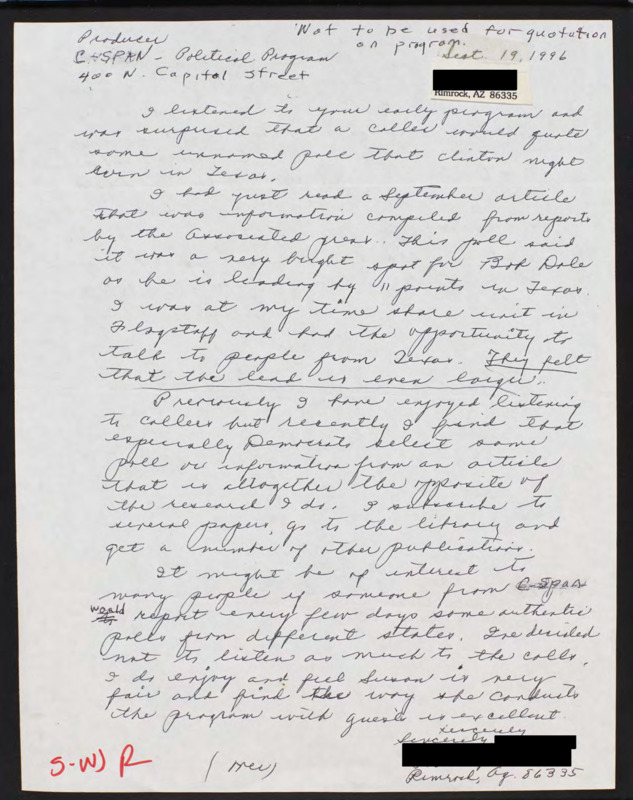 Producer
"Not to be used for quotation
on program.
C-SPAN - Political Program
Sept. 19, 1996
400 N. Capitol Street
Rimrock, AZ 86335
I listened to your early program and
was surprised that a caller would quote
some unnamed poll that Clinton might
win in Texas.
I had just read a September article
that was information compiled from reports
by the Associated press. This poll said
it was a very bright spot for Bob Dole
as he is leading by 11 points in Texas.
I was at my time share unit in
Flagstaff and had the opportunity to
talk to people from Texas. They felt
that the lead is even larger.
Previously I have enjoyed listening
to callers but recently I find that
especially Democrats select some
poll or information from an article
that is altogether the opposite of
the research I do. I subscribe to
several papers, go to the library and
get a number of other publications.
It might be of interest to
many people if someone from C-Span
would report every few days some authentic
polls from different states. I've decided
not to listen as much to the calls.
I do enjoy and feel Susan is very
fair and find the way she conducts
the program with guests is excellent.
Sincerely
Sincerely
Rimrock, Az. 86335
S-W) R